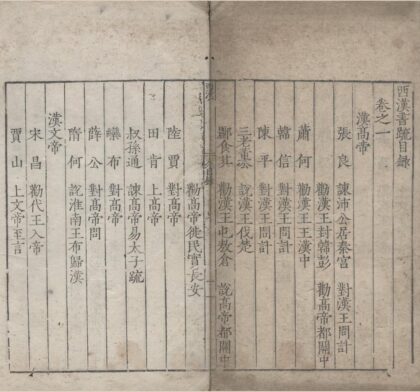 西漢書疏目錄
卷之一
漢高帝
張良 諫沛公居秦宮 對漢王問計
勸漢王封韓彭 勸高帝都關中
蕭何 勸漢王王漢中
韓信 對漢王問計
陳平 對漢王問計
三老董公 說漢王伐楚
酈食其 勸漢王屯敖倉 說高帝都關中
勸高帝徙民實長安
陸賈 對高帝
田肯 上高帝
叔孫通 諫高帝易太子疏
欒布 對高帝
薛公 對高帝問
隋何 說淮南王布歸漢
漢文帝
宋昌 勸代王入帝
賈山 上文帝至言